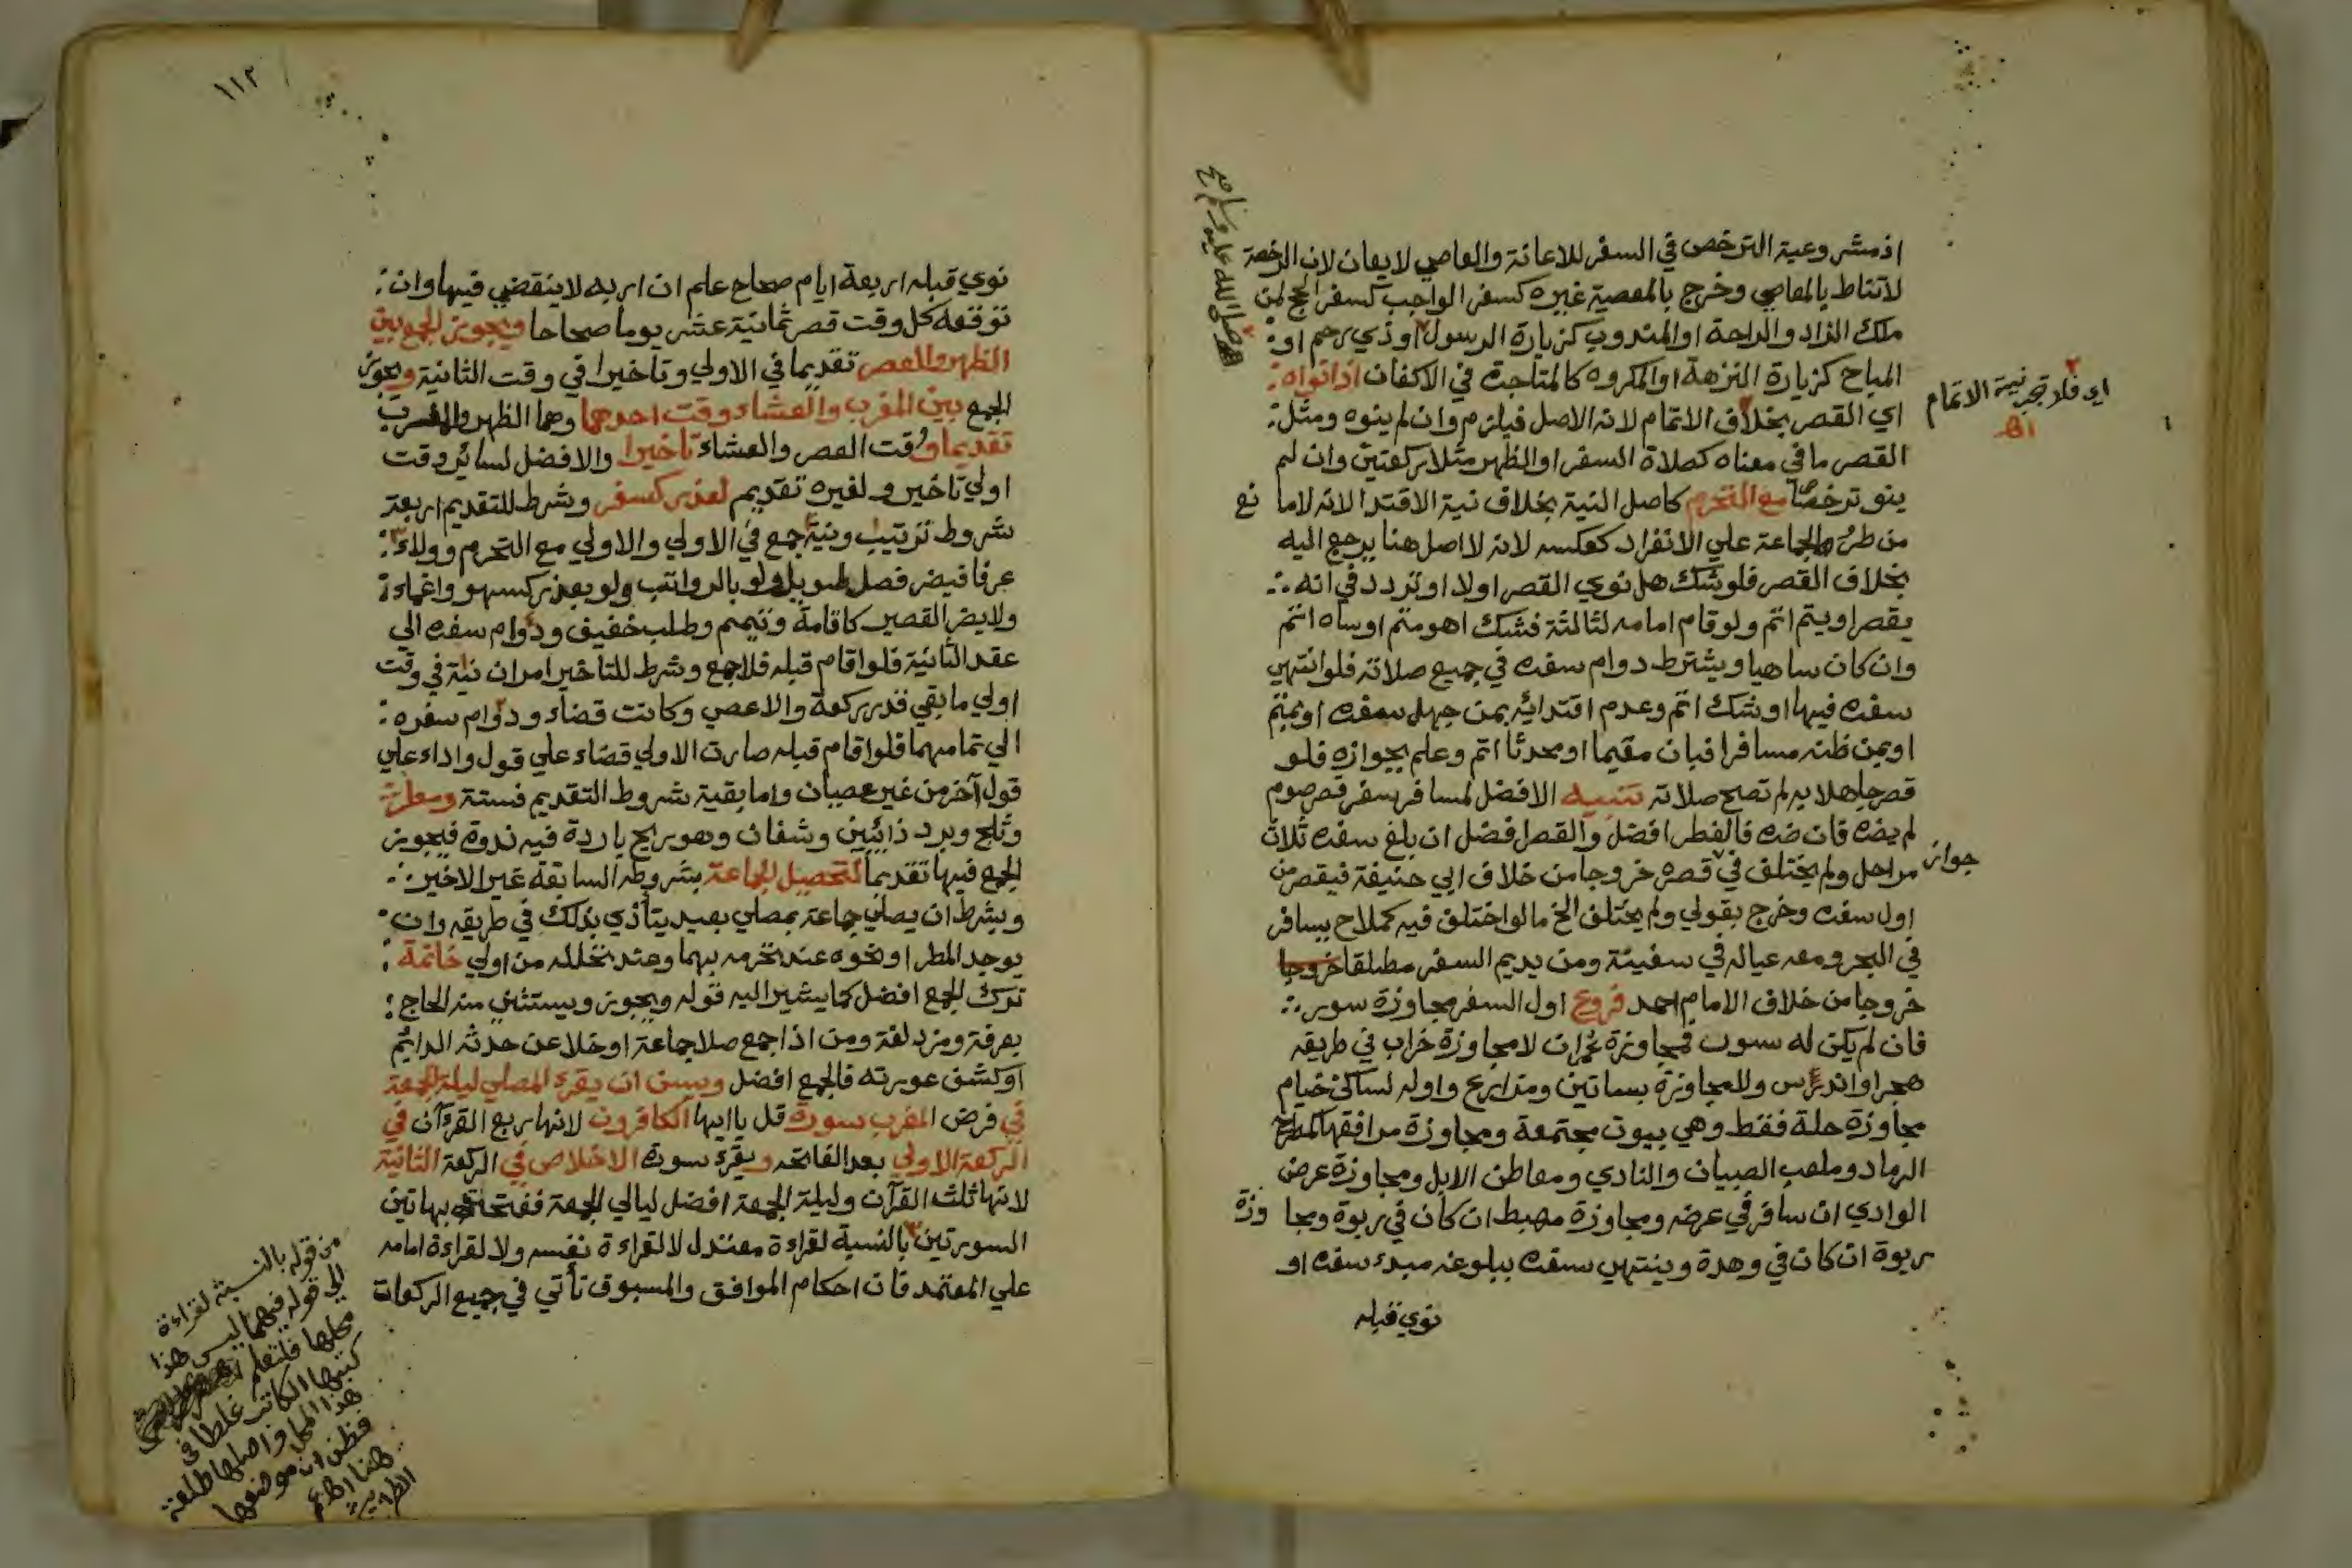 اذ مشروعية الترخص في السفر للاعانة والعاصي لا يعان لان الرخصة
لا تناط بالمعاصي وخرج بالمعصية غيره كسفر الواجب كسفر الحج لمن
ملك الزاد والراحة او المندوب كزيارة الرسول او ذي رحم او
صلى الله عليه وسلم صح
المباح كزيارة النزهة او المكروه كالمتاجرة في الاكفان اذا نواه
اي القصر بخلاف الاتمام لانه الاصل فيلزم وان لم ينوه ومثل
اي فلا تجب نية الاتمام
اه
القصر ما في معناه كصلاة السفر او الظهر مثلا ركعتين وان لم
ينو ترخصا مع التحرم كاصل النية بخلاف نية الاقتدا لانه لا ما نع
من طرو الجماعة علي الانفراد كعكسه لانه لا اصل هنا يرجع اليه
بخلاف القصر فلو شك هل نوي القصر اولا او تردد في انه
يقصر او يتم اتم ولو قام امامه لثالثة فشك اهو متم او ساه اتم
وان كان ساهيا ويشترط دوام سفره في جميع صلاته فلو انتهي
سفره فيها او شك اتم وعدم اقتدائه بمن جهل سفره او بمتم
او بمن ظنه مسافرا فبان مقيما او محدثا اتم وعلم بجوازه فلو
قصر جاهلا به لم تصح صلاته تنبيه الافضل لمسافر سفر قصر صوم
لم يضره فان ضره فالفطر افضل والقصر افضل ان بلغ سفره ثلاث
مراحل ولم يختلف في قصره خروجا من خلاف ابي حنيفة فيقصر من
جواز
اول سفره وخرج بقولي ولم يختلف الخ ما لو اختلف فيه كملاح يسافر
في البحر ومعه عياله في سفينة ومن يديم السفر مطلقا خروجا
خروجا من خلاف الامام احمد فروع اول السفر مجاوزة سور
فان لم يكن له سور فمجاوزة عمران لا مجاوزة خراب في طريقه
هجر او اندرس ولا مجاوزة بساتين ومزارع واوله لساكن خيام
مجاوزة حلة فقط وهي بيوت مجتمعة ومجاوزة مرافقها كمطرح
الرماد وملعب الصبيان والنادي ومعاطن الابل ومجاوزة عرض
الوادي ان سافر في عرضه ومجاوزة مهبط ان كان في ربوة ومجا وزة
ربوة ان كان في وهدة وينتهي سفره ببلوغه مبدء سفره او
نوي قبله
١١٢
نوي قبله اربعة ايام صحاح علم ان اربه لا ينقضي فيها وان
توقعه كل وقت قصر ثمانية عشر يوما صحاحا ويجوز الجمع بين
الظهر والعصر تقديما في الاولي وتاخيرا في وقت الثانية ويجوز
الجمع بين المغرب والعشاء وقت احدهما وهما الظهر والمغرب
تقديما ووقت العصر والعشاء تاخيرا والافضل لسائر وقت
اولي تاخير ولغيره تقديم لعذر كسفر وشرط للتقديم اربعة
شروط ترتيب ونية جمع في الاولي والاولي مع التحرم وولاء
عرفا فيضر فصل طويل ولو بالرواتب ولو بعذر كسهو واغماء
ولا يضر القصير كاقامة وتيمم وطلب خفيف ودوام سفره الي
عقد الثانية فلو اقام قبله فلا جمع وشرط للتاخير امران نية في وقت
اولي ما بقي قدر ركعة والا عصي وكانت قضاء ودوام سفره
الي تمامهما فلو اقام قبله صارت الاولي قضاء علي قول واداء علي
قول آخر من غير عصيان واما بقية شروط التقديم فسنة ومطر
وثلج وبرد ذائبين وشفان وهو ريح باردة فيه ندوة فيجوز
الجمع فيها تقديما لتحصيل الجماعة بشروطه السابقة غير الاخير
ويشرط ان يصلي جماعة بمصلي بعيد يتأذي بذلك في طريقه وان
يوجد المطر او نحوه عند تحرمه بهما وعند تحلله من اولي خاتمة
ترك الجمع افضل كما يشير اليه قوله ويجوز ويستثني منه الحاج
بعرفة ومزدلفة ومن اذا جمع صلا جماعة او خلا عن حدثه الدائم
او كشف عورته فالجمع افضل ويسن ان يقرء المصلي ليلة الجمعة
في فرض المغرب سورة قل ياايها الكافرون لانها ربع القرءان في
الركعة الاولي بعد الفاتحه ويقرء سورة الاخلاص في الركعة الثانية
لانها ثلث القرآن وليلة الجمعة افضل ليالي الجمعة ففتحت بهاتين
السورتين بالنسبة لقراءة معتدل لا لقراءة نفسه ولا لقراءة امامه
علي المعتمد فان احكام الموافق والمسبوق تأتي في جميع الركعات
من قوله بالنسبة لقراءة
الي قوله فيهما ليس هذا
محلها فلتعلم
كتبها الكاتب غلطا في
هذا المحل واصلها طلعة
فظن ان موضعها
هنا اه